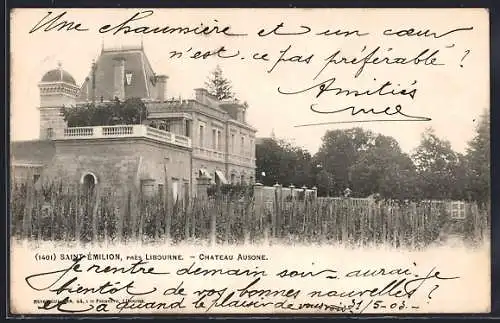 Une chaumière et un cœur
n'est-ce pas préférable ?
Amitiés
(1401) SAINT-ÉMILION, PRÈS LIBOURNE. - CHATEAU AUSONE.
Je rentre demain soir - aurai-je
bientôt de vos bonnes nouvelles ?
et à quand le plaisir de vous voir 31/5-03-